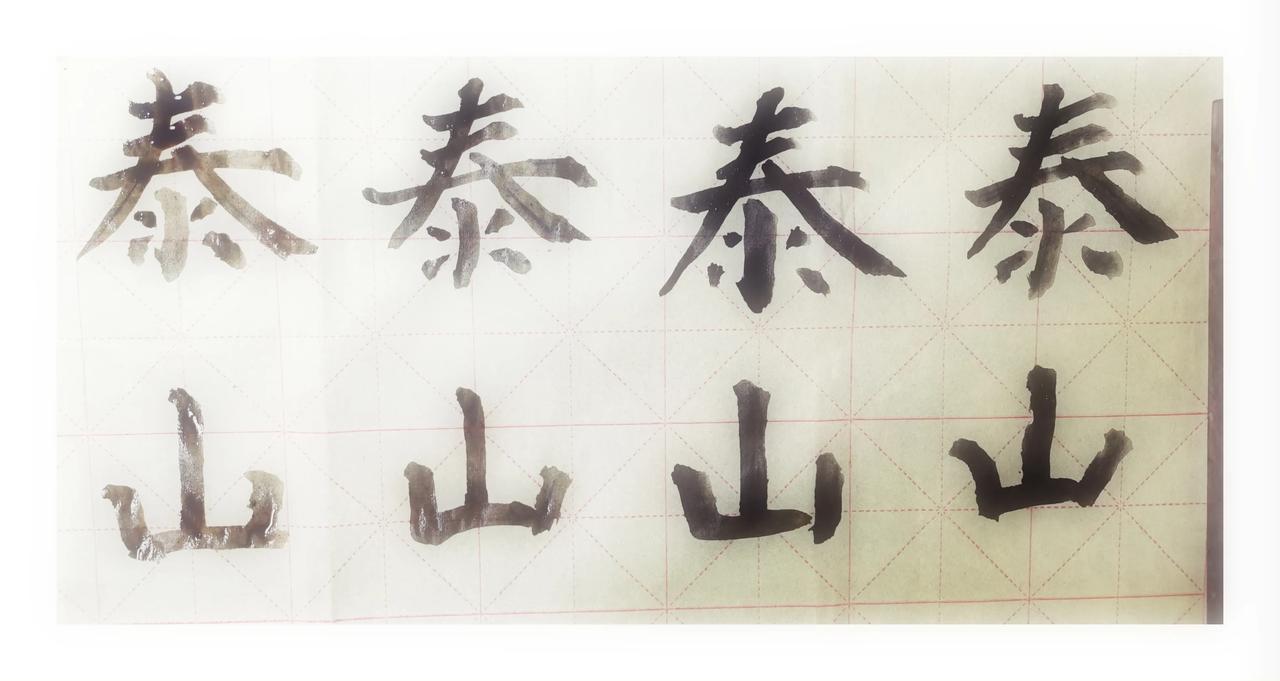 泰泰泰泰
山山山山